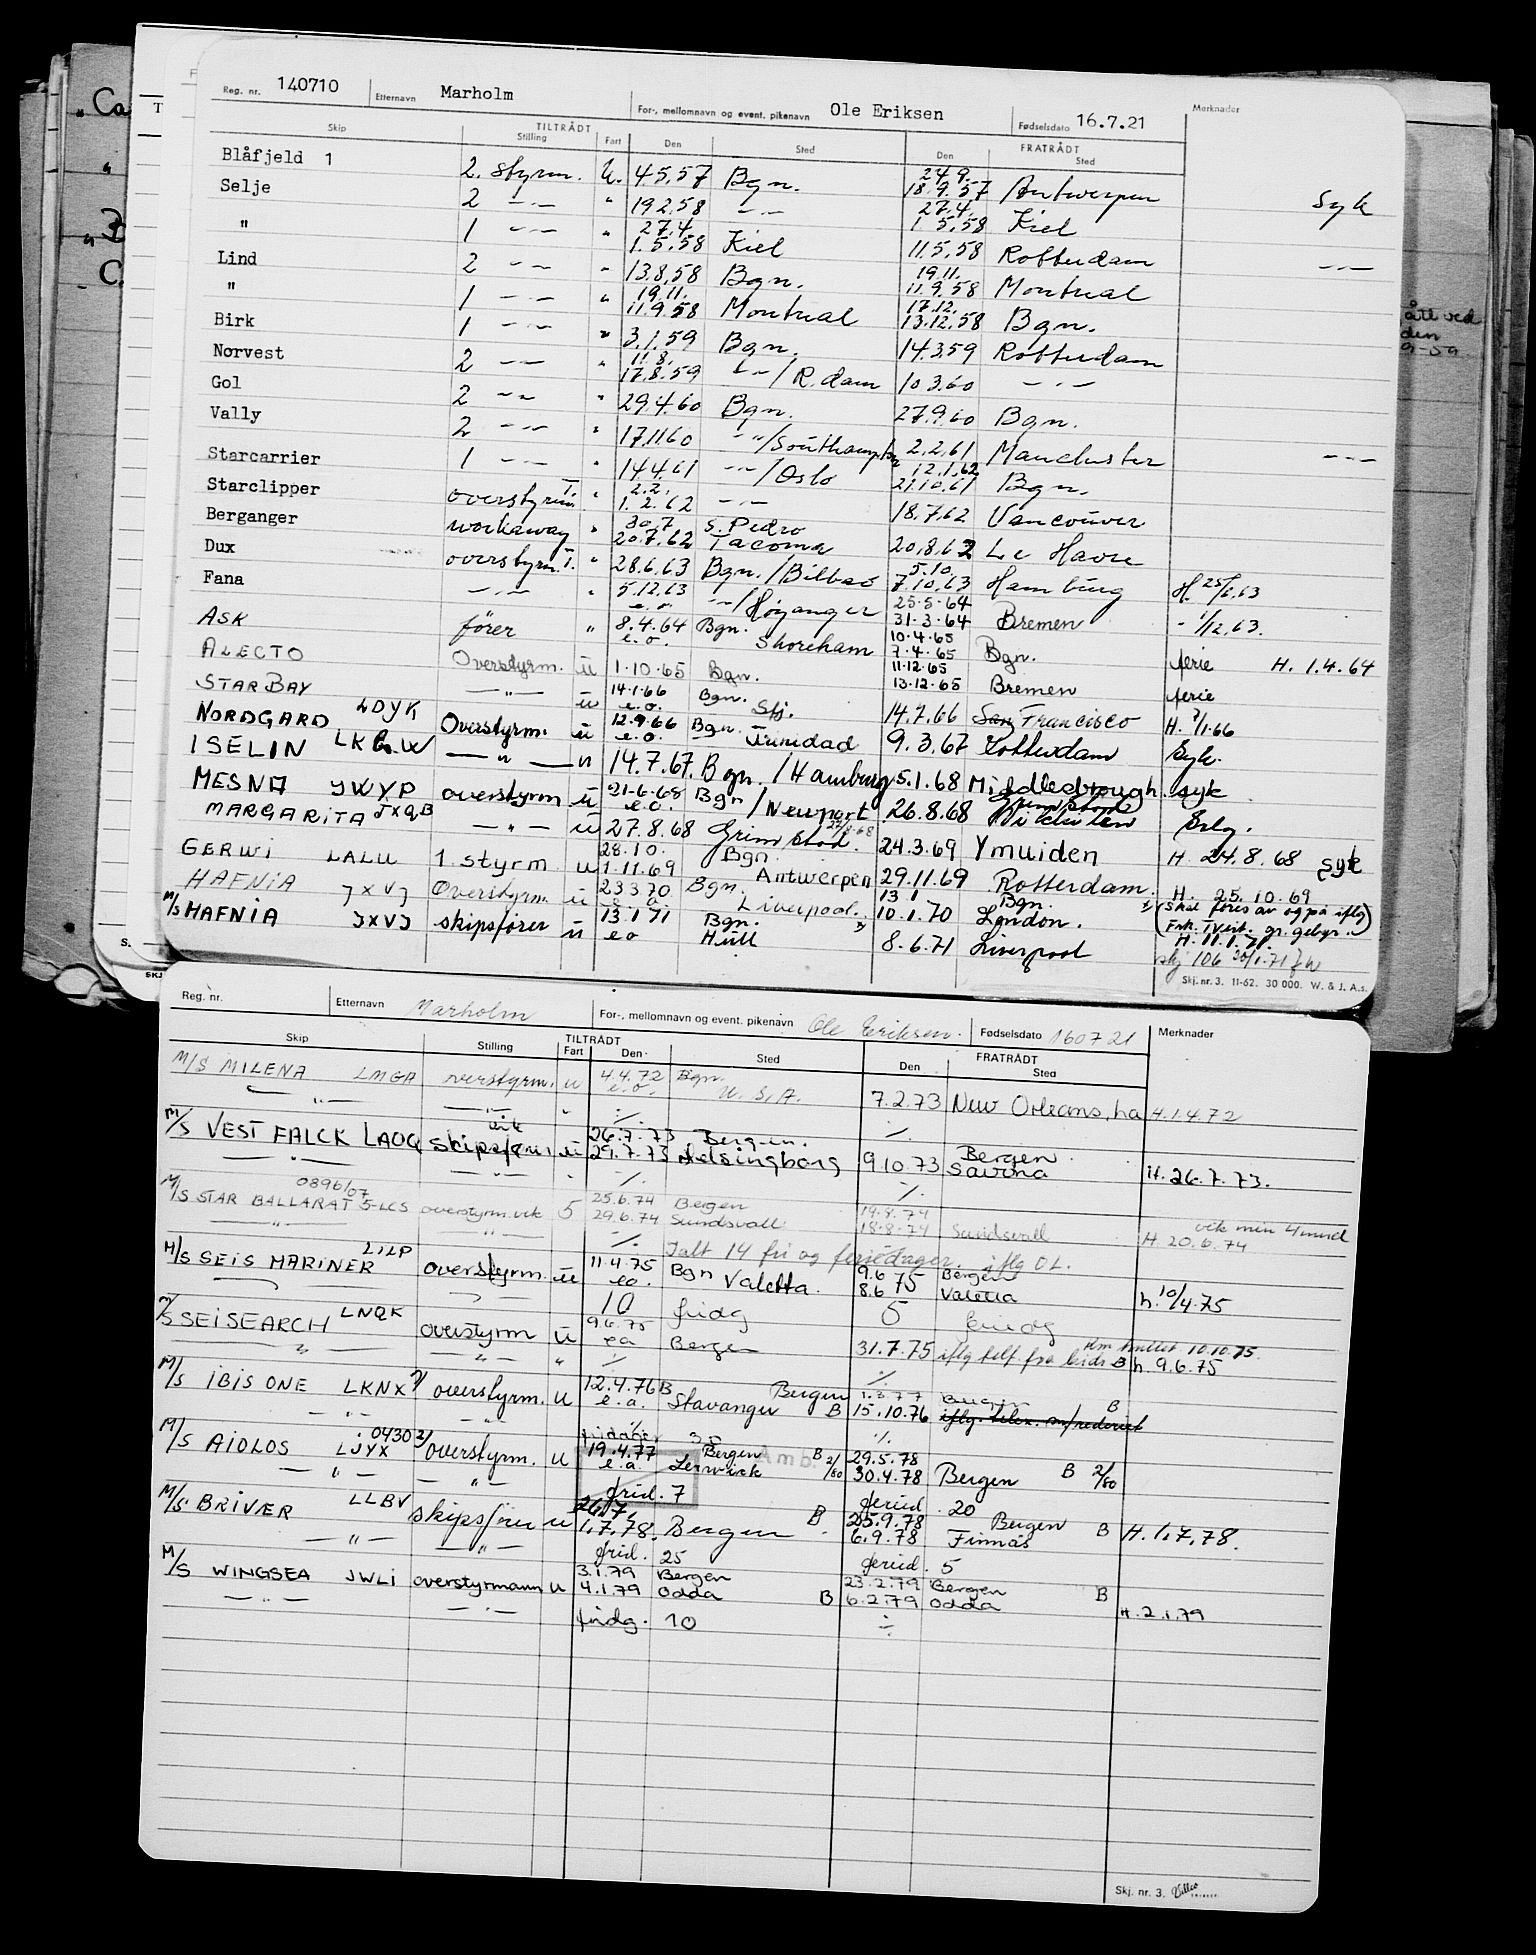 Reg. nr. 140710 Etternavn Marholm For-, mellomnavn og event. pikenavn Ole Eriksen Fødselsdato 16.7.21 Merknader
Skip TILTRÅDT Stilling Fart Den Sted FRATRÅDT Den Sted
Blåfjeld 1 2. styrm. U. 4.5.57 Bgn. 24.9. 18.9.57 Antwerpen Syk
Selje 2 —"— " 19.2.58 —"— 27.4. 1.5.58 Kiel
" 1 —"— " 27.4. 1.5.58 Kiel 11.5.58 Rotterdam —"—
Lind 2 —"— " 13.8.58 Bgn. 19.11. 11.9.58 Montreal
" 1 —"— " 19.11. 11.9.58 Montreal 17.12. 13.12.58 Bgn.
Birk 1 —"— " 3.1.59 Bgn. 14.3.59 Rotterdam
Norvest 2 —"— " 11.8. 17.8.59 —"—/R.dam 10.3.60 —"—
Gol 2 —"— " 29.4.60 Bgn. 27.9.60 Bgn.
Vally 2 —"— " 17.11.60 —"—/Southampton 2.2.61 Manchester —"—
Starcarrier 1 —"— " 14.4.61 —"—/Oslo 12.1.62 21.10.61 Bgn.
Starclipper overstyrm. T. " 2.2. 1.2.62 —"— 18.7.62 Vancouver
Berganger workaway " 30.7 20.7.62 S. Pedro Tacoma 20.8.62 Le Havre
Dux overstyrm. T. " 28.6.63 Bgn./Bilbao 5.10. 7.10.63 Hamburg H. 25/6.63
Fana —"— " 5.12.63 e.o. —"—/Høyanger 25.5.64 31.3.64 Bremen - 1/12.63.
ASK fører " 8.4.64 e.o. Bgn. Shoreham 10.4.65 7.4.65 Bgn. ferie H. 1.4.64
ALECTO Overstyrm. u 1.10.65 Bgn. 11.12.65 13.12.65 Bremen ferie
STAR BAY —"— u 14.1.66 e.o. Bgn. Stj. 14.7.66 San Francisco H. 7/1.66
NORDGARD LDYK Overstyrm. u 12.9.66 e.o. Bgn. Trinidad 9.3.67 Rotterdam Syk.
ISELIN —"— u 14.7.67. Bgn./Hamburg 5.1.68 Middlesbrough. syk
MESNA JWYP overstyrm u 21.6.68 e.o. Bgn/Newport 26.8.68 Grimstad
MARGARITA JXQB —"— u 27.8.68 Grimstad. 24.3.69 Ymuiden H 24.8.68 syk
GERWI LALU 1. styrm u 28.10. 1.11.69 Bgn. Antwerpen 29.11.69 Rotterdam. H 25.10.69
HAFNIA JXVJ Overstyrm. u 23 3 70 e.o. Bgn. Liverpool. 13 1 10.1.70 Bgn. London. (skal føres av og på iflg
M/S HAFNIA JXVJ skipsfører u 13 1 71 e o Bgn. Hull 8.6.71 Liverpool H. 11.1.71.
Skj. nr. 3. 11-62. 30 000. W. & J. A.s.
Reg. nr. Etternavn Marholm For-, mellomnavn og event. pikenavn Ole Eriksen. Fødselsdato 160721 Merknader
Skip Stilling TILTRÅDT Fart Den Sted FRATRÅDT Den Sted
M/S MILENA LMGA overstyrm. u 4.4.72 e.o. Bgn. U.S.A. 7.2.73 New Orleans, La H.1.4.72
—"— —"— " ./. ./.
M/S VEST FALCK LAOG skipsfører vik u 26.7.73 29.7.73 Bergen. Helsingborg 9.10.73 Bergen Savona H. 26.7.73.
—"— —"— " ./. ./.
M/S STAR BALLARAT 5-LCS 0896/07 overstyrm.vik 5 25.6.74 29.6.74 Bergen Sundsvall 19.8.74 18.8.74 Sundsvall vik min 4 mnd H. 20.6.74
—"— —"— ./. Talt 14 fri og feriedager. iflg OL.
M/S SEIS MARINER LILP overstyrm. u 11.4.75 eo. Bgn Valetta. 9.6 8.6 75 Bergen Valetta h. 10/4.75
10 fridg 5 feriedg
M/S SEISEARCH LNQK overstyrm u 9.6.75 ea Bergen 31.7.75 iflg telf fra leids B h. 9.6.75
—"— —"— " ./. ./.
M/S IBIS ONE LKNX overstyrm. u 12.4.76 e.a. B Stavanger Bergen B 1.3.77 15.10.76 Bergen B iflg. telex. m/rederiet
—"— —"— fridager 30 ./.
M/S AIOLOS LJYX 0430 overstyrm. u 19.4.77 e.a. Bergen Lerwick B 2/80 29.5.78 30.4.78 Bergen B 2/80
—"— —"— frid. 7 feried. 20
M/S BRIVÆR LLBV skipsfører u 26.7. 1.7.78. Bergen B 25.9.78 6.9.78 Bergen Finnås B H. 1.7.78.
—"— —"— frid. 25 feried. 5
M/S WINGSEA JWLI overstyrmann u 3.1.79 4.1.79 Bergen Odda B 23.2.79 6.2.79 Bergen Odda B H. 2.1.79
—"— —"— fridg. 10 ./.
Skj. nr. 3.